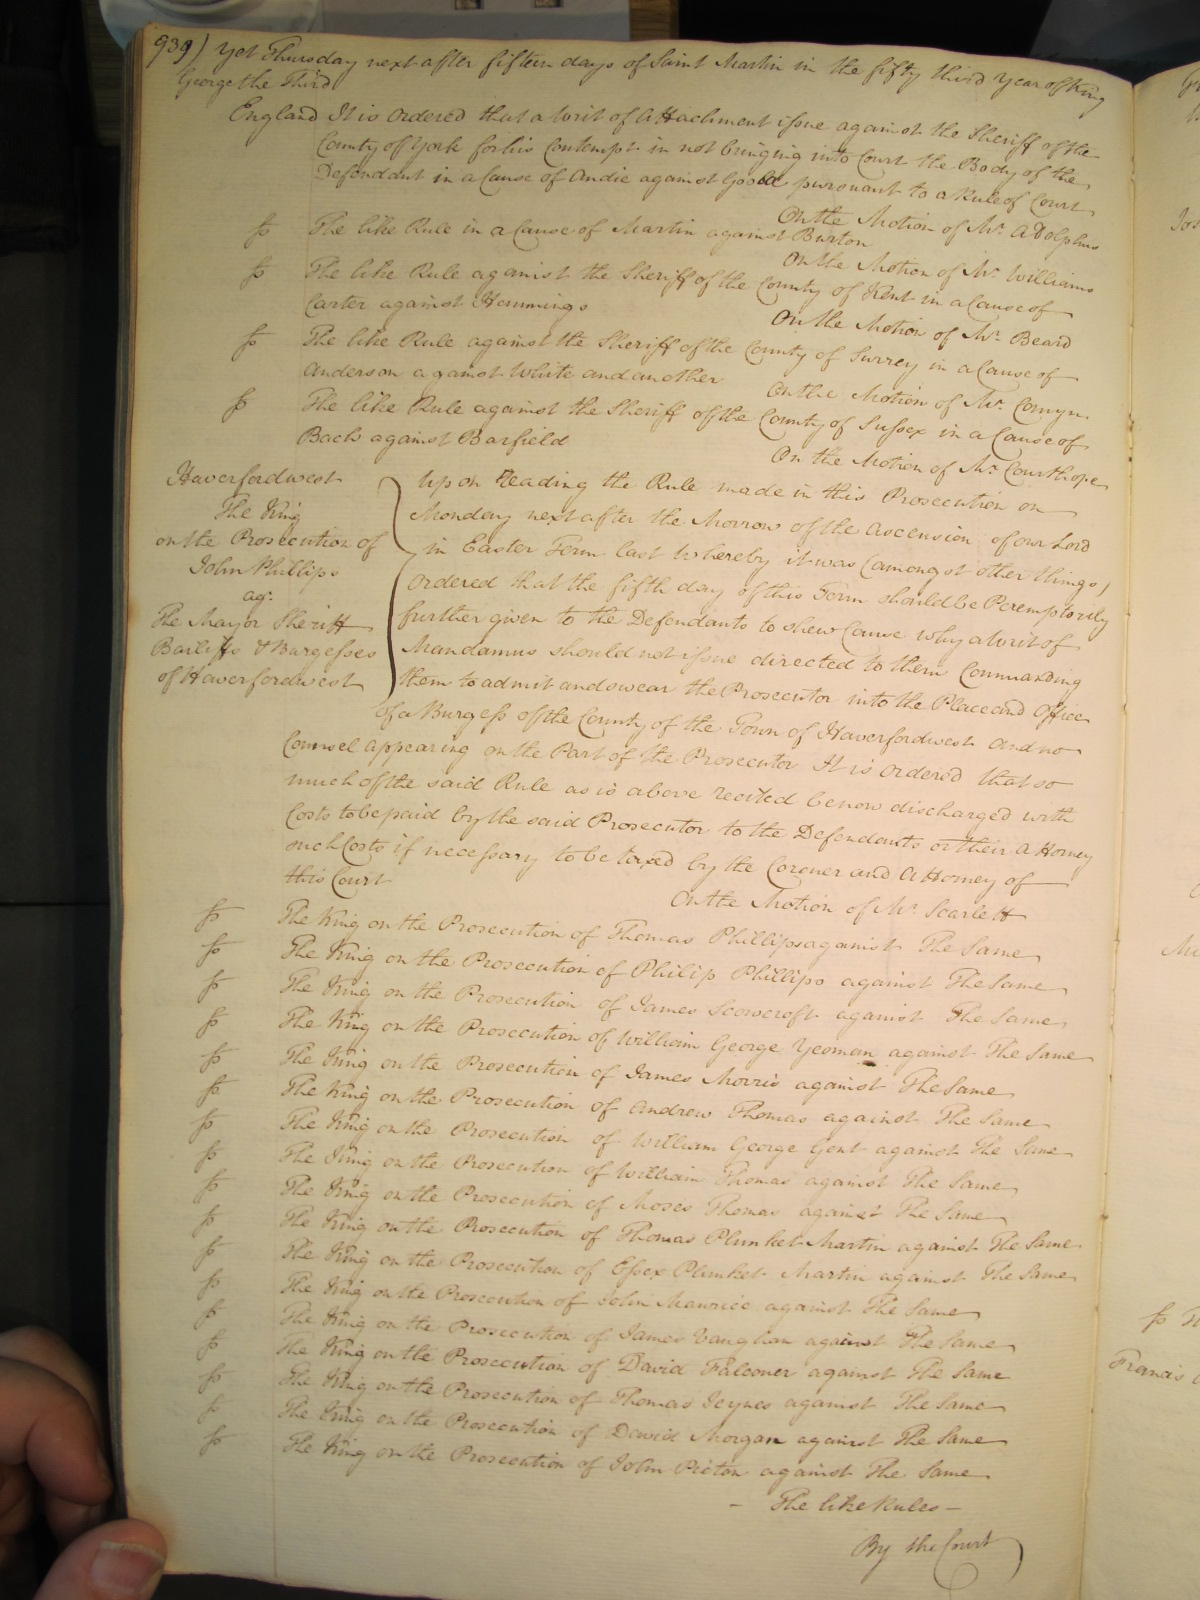 939) Yet Thursday next after fifteen days of Saint Martin in the fifty third Year of King
George the Third
England It is ordered that a Writ of Attachment issue against the Sheriff of the
County of York for his Contempt in not bringing into Court the Body of the
Defendant in a Cause of Andie against Goold pursuant to a Rule of Court
On the Motion of Mr. Adolphus
The like Rule in a Cause of Martin against Burton
On the Motion of Mr. Williams
The like Rule against the Sheriff of the County of Kent in a Cause of
Carter against Hemmings
On the Motion of Mr. Beard
The like Rule against the Sheriff of the County of Surrey in a Cause of
Anderson against White and another
On the Motion of Mr. Comyn
The like Rule against the Sheriff of the County of Sussex in a Cause of
Back against Barfield
On the Motion of Mr. Courthope
Haverfordwest
The King
on the Prosecution of
John Phillips
agt.
The Mayor Sheriff
Bailiffs & Burgesses
of Haverfordwest
Upon reading the Rule made in this Prosecution on
Monday next after the Morrow of the Ascension of our Lord
in Easter Term last Whereby it was (amongst other things)
Ordered that the fifth day of this Term should be Peremptorily
further given to the Defendants to shew Cause why a Writ of
Mandamus should not issue directed to them Commanding
them to admit and swear the Prosecutor into the Place and Office
of a Burgess of the County of the Town of Haverfordwest And no
Counsel appearing on the Part of the Prosecutor It is Ordered that so
much of the said Rule as is above recited be now discharged with
Costs to be paid by the said Prosecutor to the Defendants or their Attorney
such Costs if necessary to be taxed by the Coroner and Attorney of
this Court
On the Motion of Mr. Scarlett
The King on the Prosecution of Thomas Phillips against The Same
The King on the Prosecution of Philip Phillips against The Same
The King on the Prosecution of James Scowcroft against The Same
The King on the Prosecution of William George Yeoman against The Same
The King on the Prosecution of James Morris against The Same
The King on the Prosecution of Andrew Thomas against The Same
The King on the Prosecution of William George Gent against The Same
The King on the Prosecution of William Thomas against The Same
The King on the Prosecution of Moses Thomas against The Same
The King on the Prosecution of Thomas Plunket Martin against The Same
The King on the Prosecution of Essex Plunket Martin against The Same
The King on the Prosecution of John Maurice against The Same
The King on the Prosecution of James Vaughan against The Same
The King on the Prosecution of David Falconer against The Same
The King on the Prosecution of Thomas Jeynes against The Same
The King on the Prosecution of David Morgan against The Same
The King on the Prosecution of John Picton against The Same
— The like Rules —
By the Court
Francis